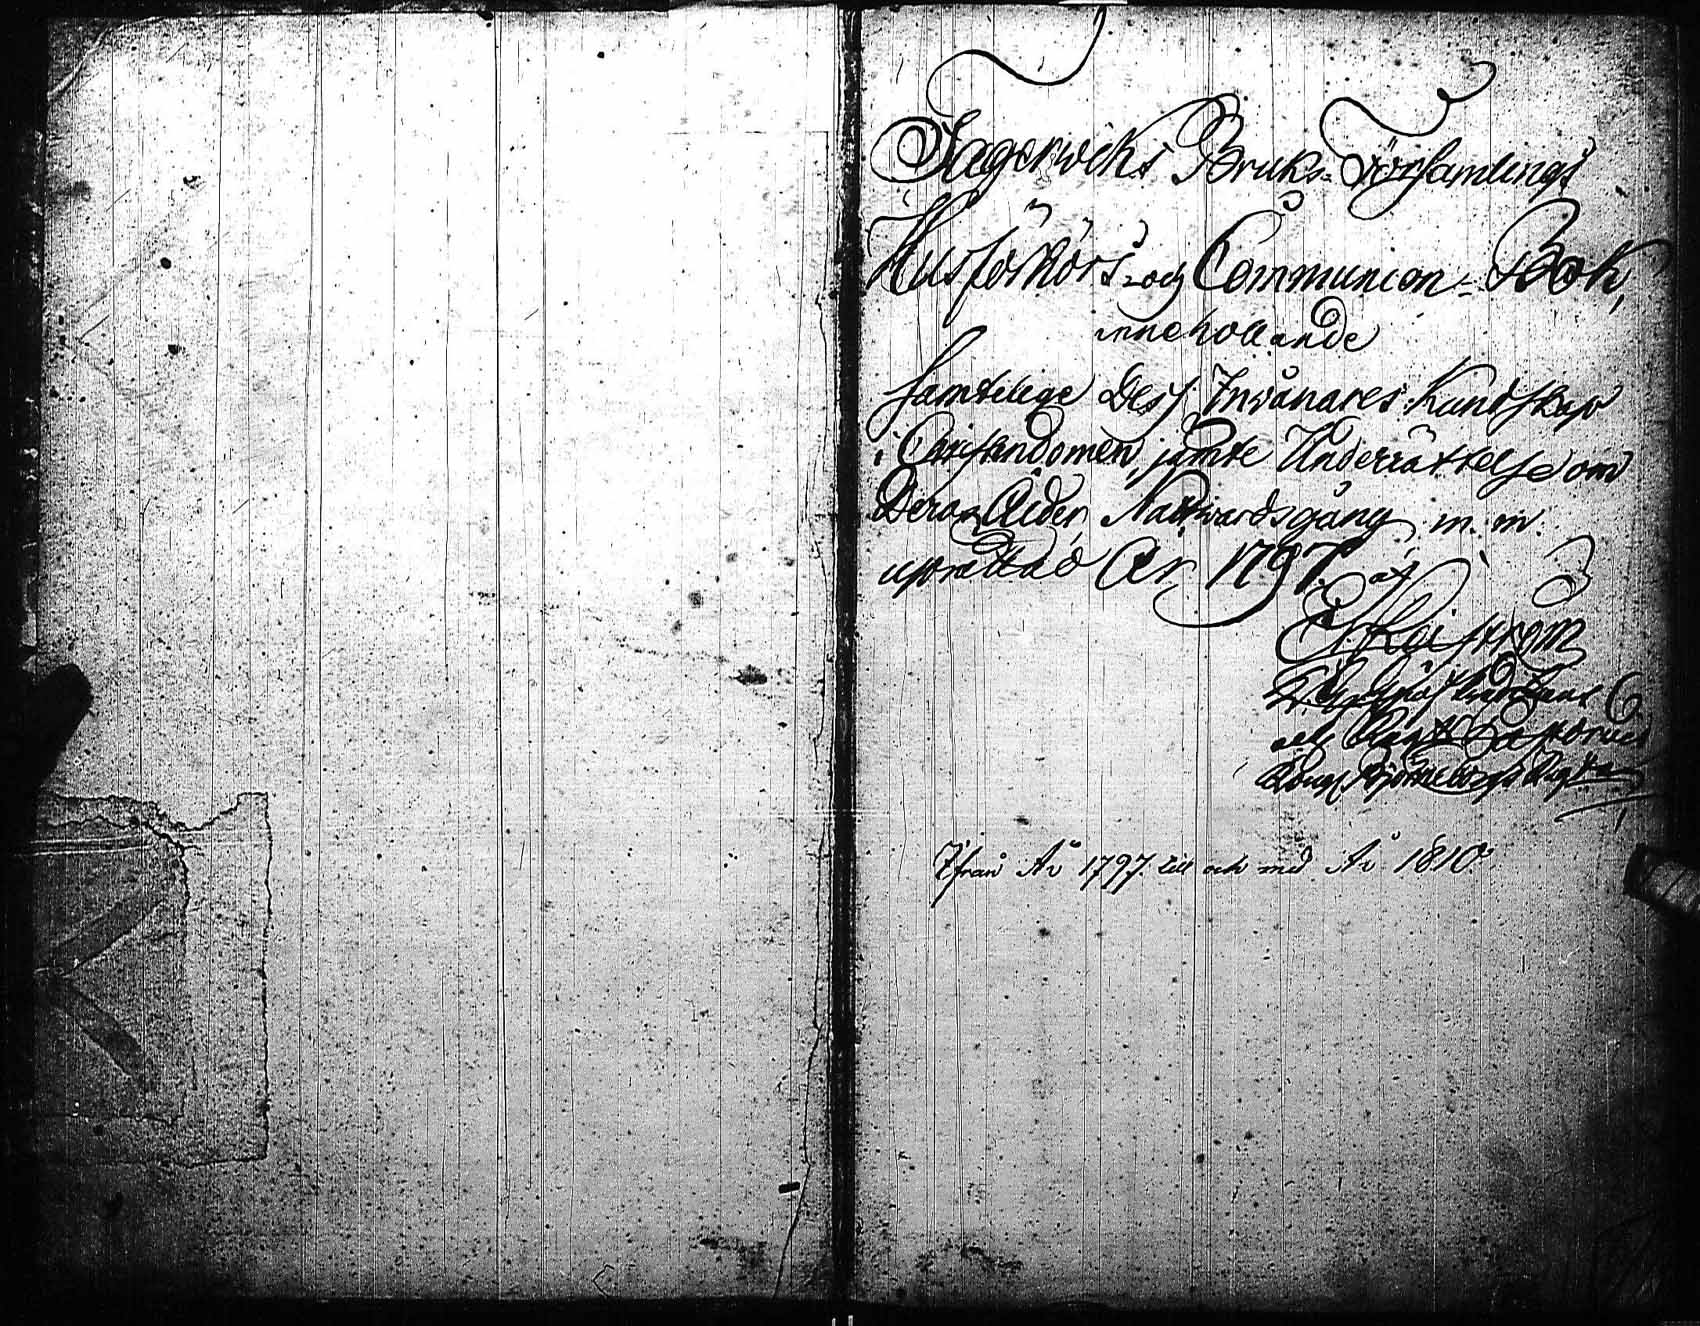 Fagerwiks Bruks-Församlings
Husförhörs- och Communion-Bok,
innehollande
samtelige Dess Invånares Kundskap
i Christendomen, jämte Underrättelse om
Deras Ålder, Nattwardsgång m. m.
uprättad År 1797. af
och
Ifrån År 1797. till och med År 1810.